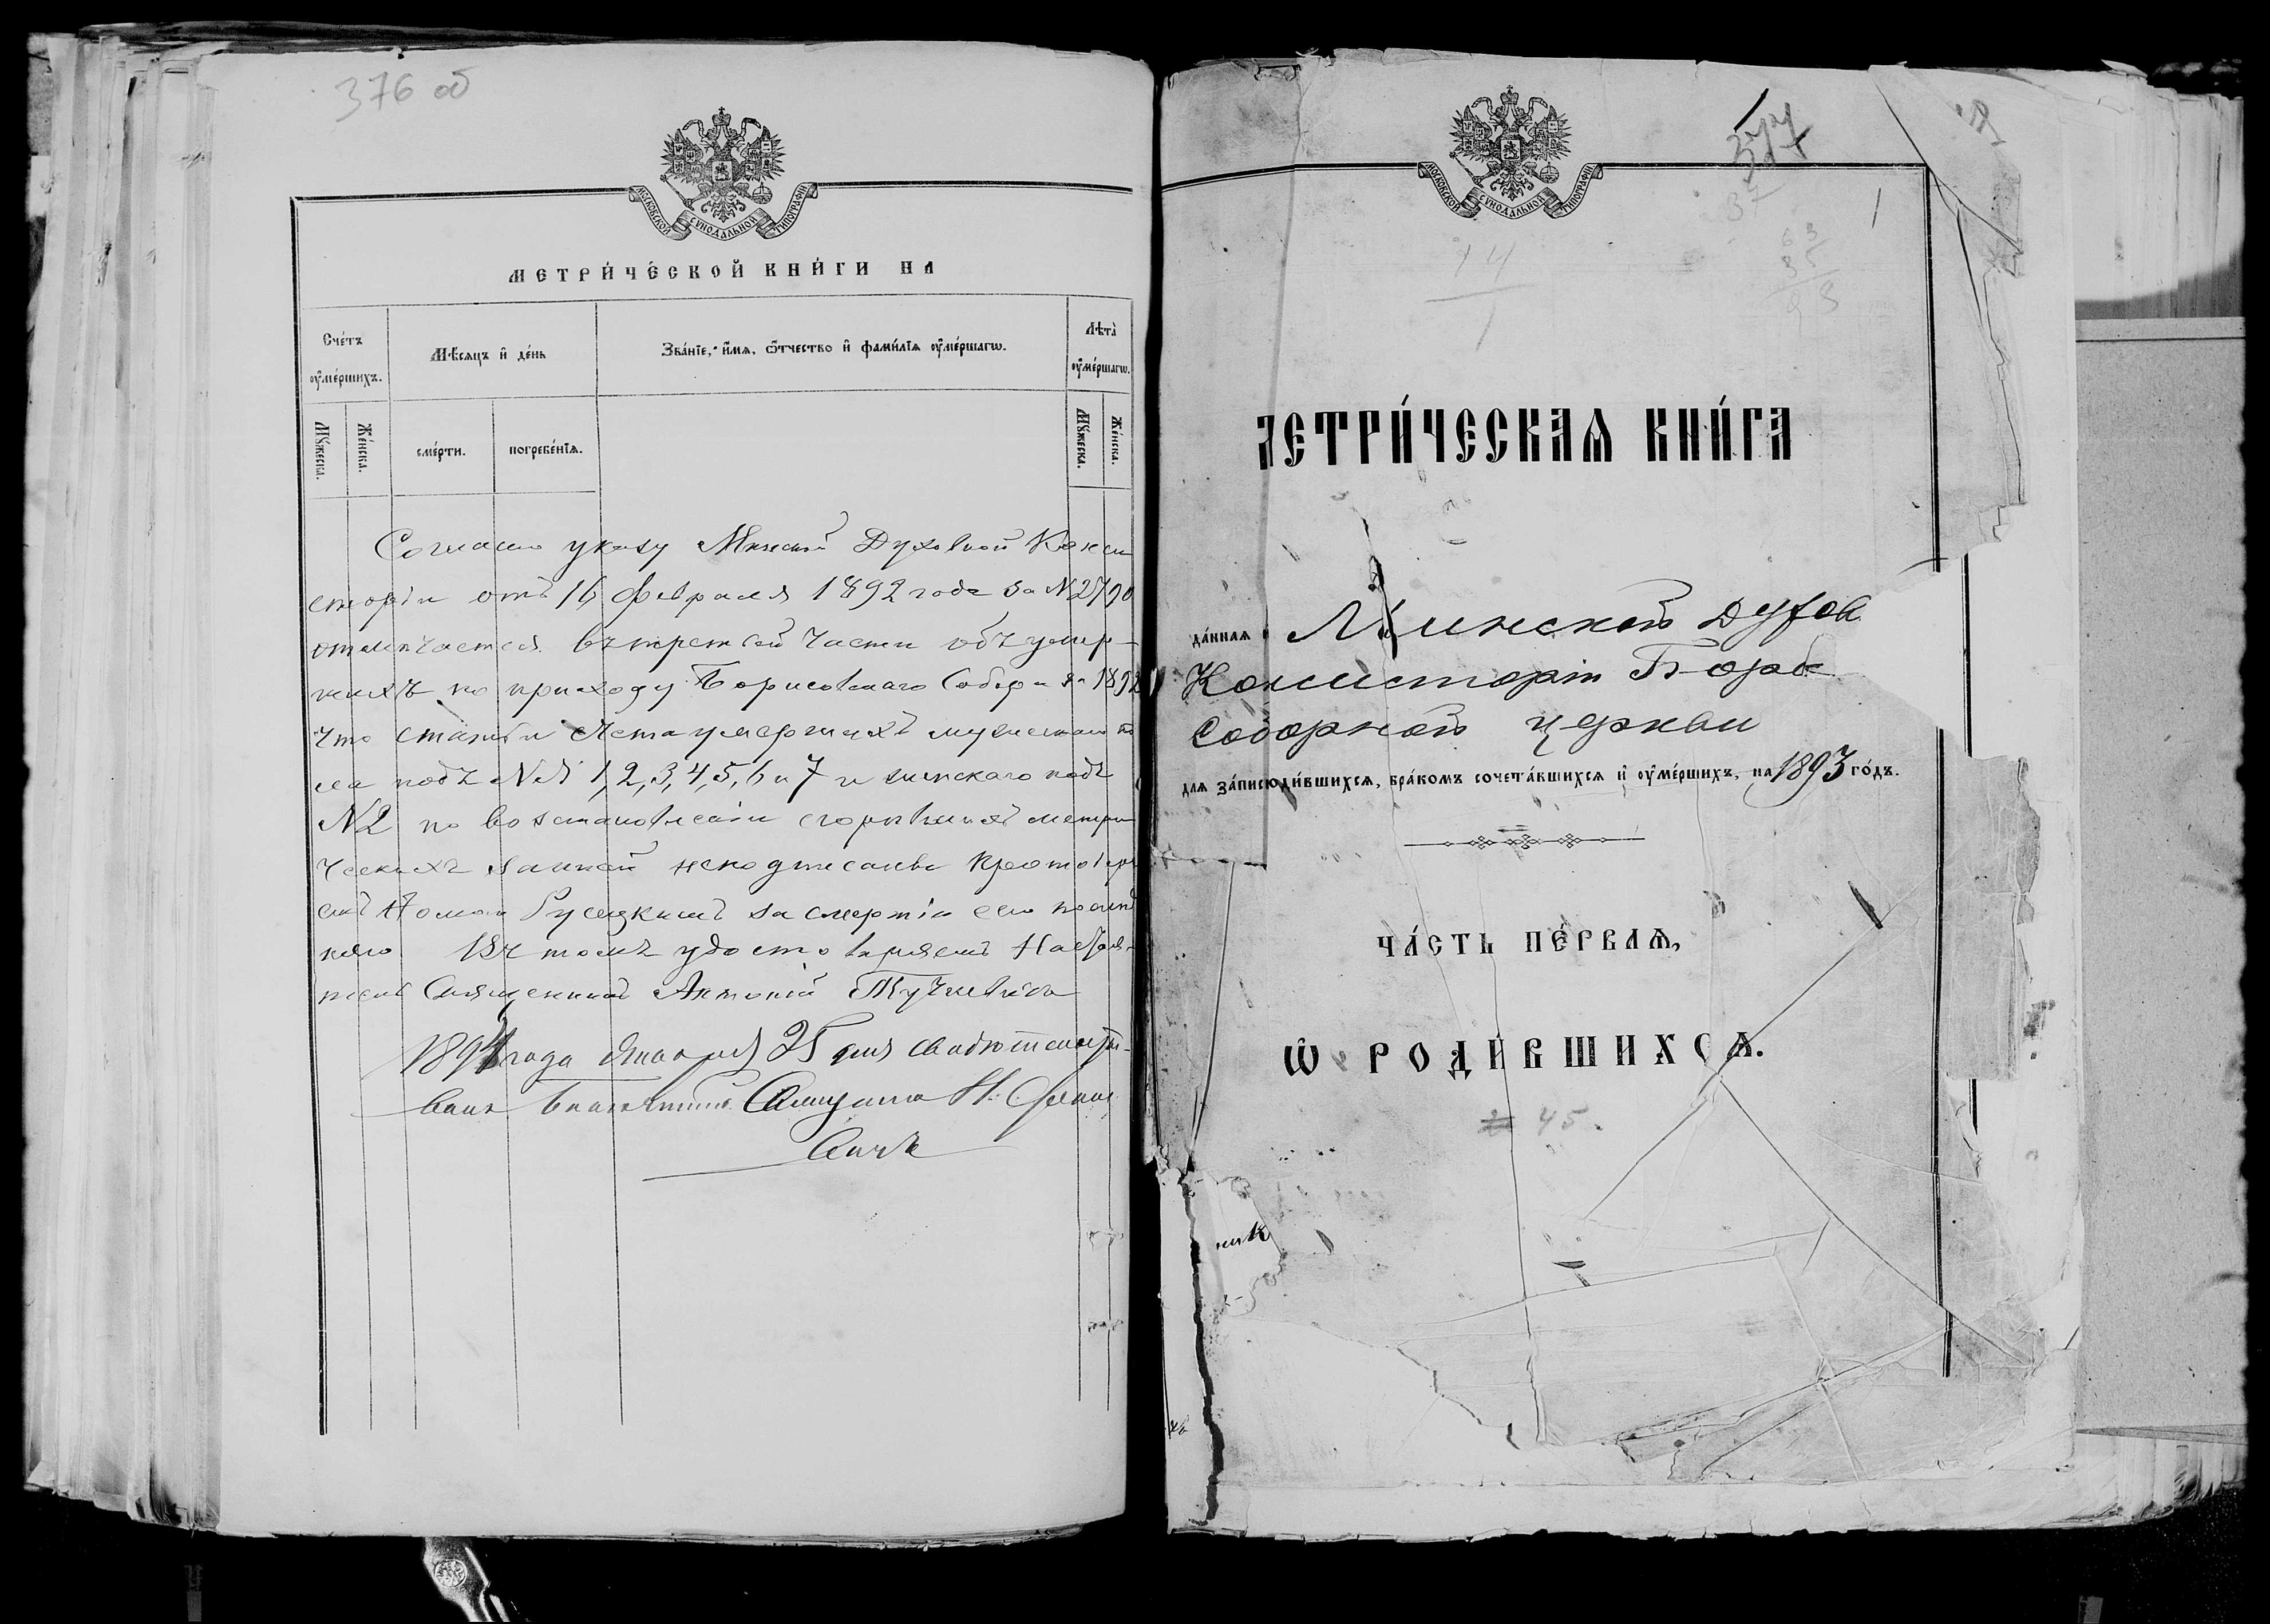 376 об
МОСКОВСКОЙ СѴНОДАЛЬНОЙ ТИПОГРАФІИ
МЕТРИ́ЧЕСКОЙ КНИ́ГИ НА
Сче́тъ оу҆ме́ршихъ.
Мѣ́сяцъ и҆ де́нь
Зва́нїе, и҆́мѧ, ѻ҆́тчество и҆ фами́лїѧ оу҆ме́ршагѡ.
Лѣта̀ оу҆ме́ршагѡ.
Мꙋ́жеска.
Же́нска.
сме́рти.
погребе́нїѧ.
Мꙋ́жеска.
Же́нска.
Согласно указу Минской Духовной Конси
сторіи отъ 16 Февраля 1892 года за № 2790
отмѣчается въ третьей части объ умер-
шихъ по приходу Борисовскаго Собора за 1892
что статьи счета умершихъ мужескаго по
ла подъ №№ 1, 2, 3, 4, 5, 6 и 7 и женскаго подъ
№ 2 по возстановленіи сгорѣвшихъ метри
ческихъ записей неподписаны Протоіере
емъ Фомою Русецкимъ за смертію его послѣд
няго Въ томъ удостовѣряемъ Настоя-
тель Священникъ Антоній
1894 года Января 25 дня свидѣтельство-
валъ
МОСКОВСКОЙ СѴНОДАЛЬНОЙ ТИПОГРАФІИ
377
37
1
14
1
63
35
98
ЕТРИ́ЧЕСКАѦ КНИ́ГА
да́ннаѧ Минской Духов
Консисторіи Бори
Соборной церкви
длѧ за́писи роди́вшихсѧ, бра́комъ сочета́вшихсѧ и҆ оу҆ме́ршихъ, на 1893 го́дъ.
ЧА́СТЬ ПЕ́РВАѦ,
Ѡ҆ РОДИ́ВШИХСѦ.
45.